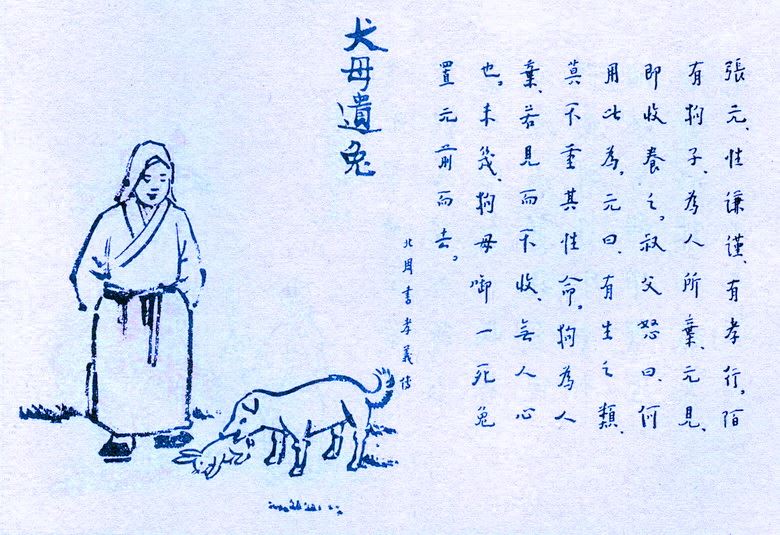 犬母遺兔
張元、性謙謹、有孝行。陌
有狗子、為人所棄、元見、
即收養之。叔父怒曰、何
用此為。元曰、有生之類、
莫不重其性命。狗為人
棄、若見而不收、無人心
也。未幾、狗母啣一死兔
置元前而去。
北周書孝義傳